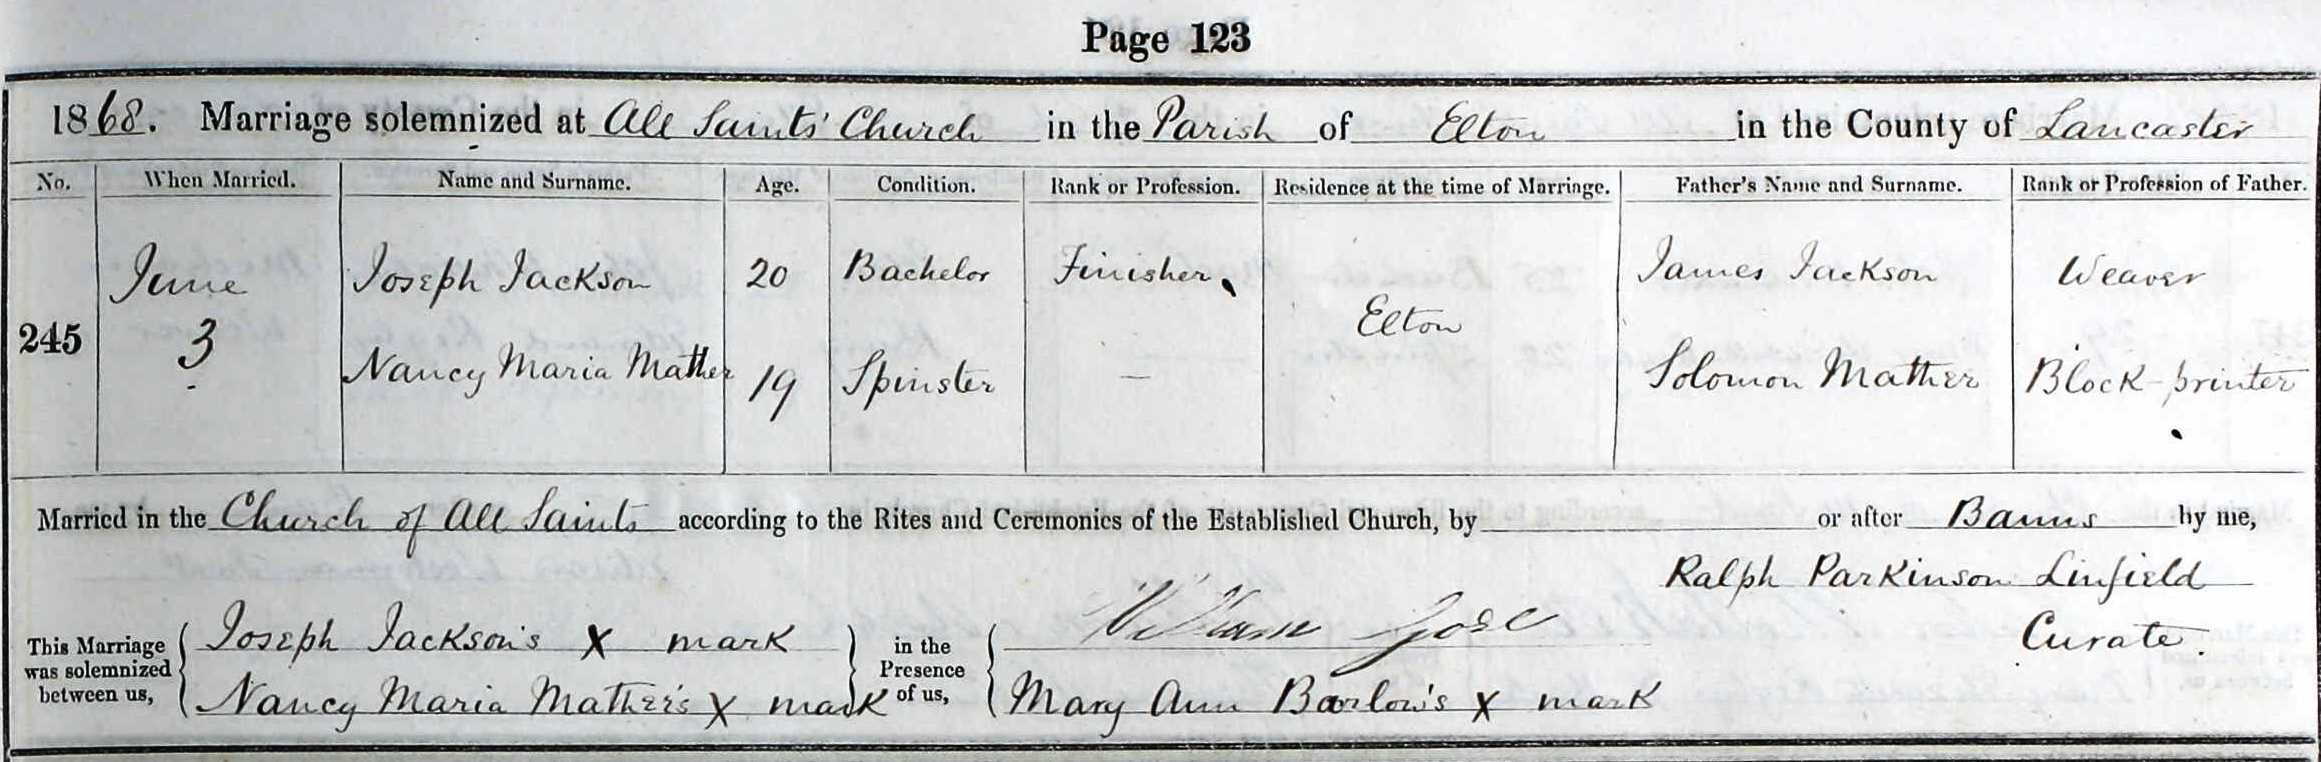 Page 123
1868. Marriage solemnized at All Saints' Church in the Parish of Elton in the County of Lancaster
No. When Married. Name and Surname. Age. Condition. Rank or Profession. Residence at the time of Marriage. Father's Name and Surname. Rank or Profession of Father.
June Joseph Jackson 20 Bachelor Finisher James Jackson Weaver
245 3 Elton
Nancy Maria Mather 19 Spinster — Solomon Mather Block-printer
Married in the Church of All Saints according to the Rites and Ceremonies of the Established Church, by or after Banns by me,
Ralph Parkinson Linfield
Curate.
This Marriage was solemnized between us,
Joseph Jackson's X mark
Nancy Maria Mather's X mark
in the Presence of us,
William
Mary Ann Barlow's X mark